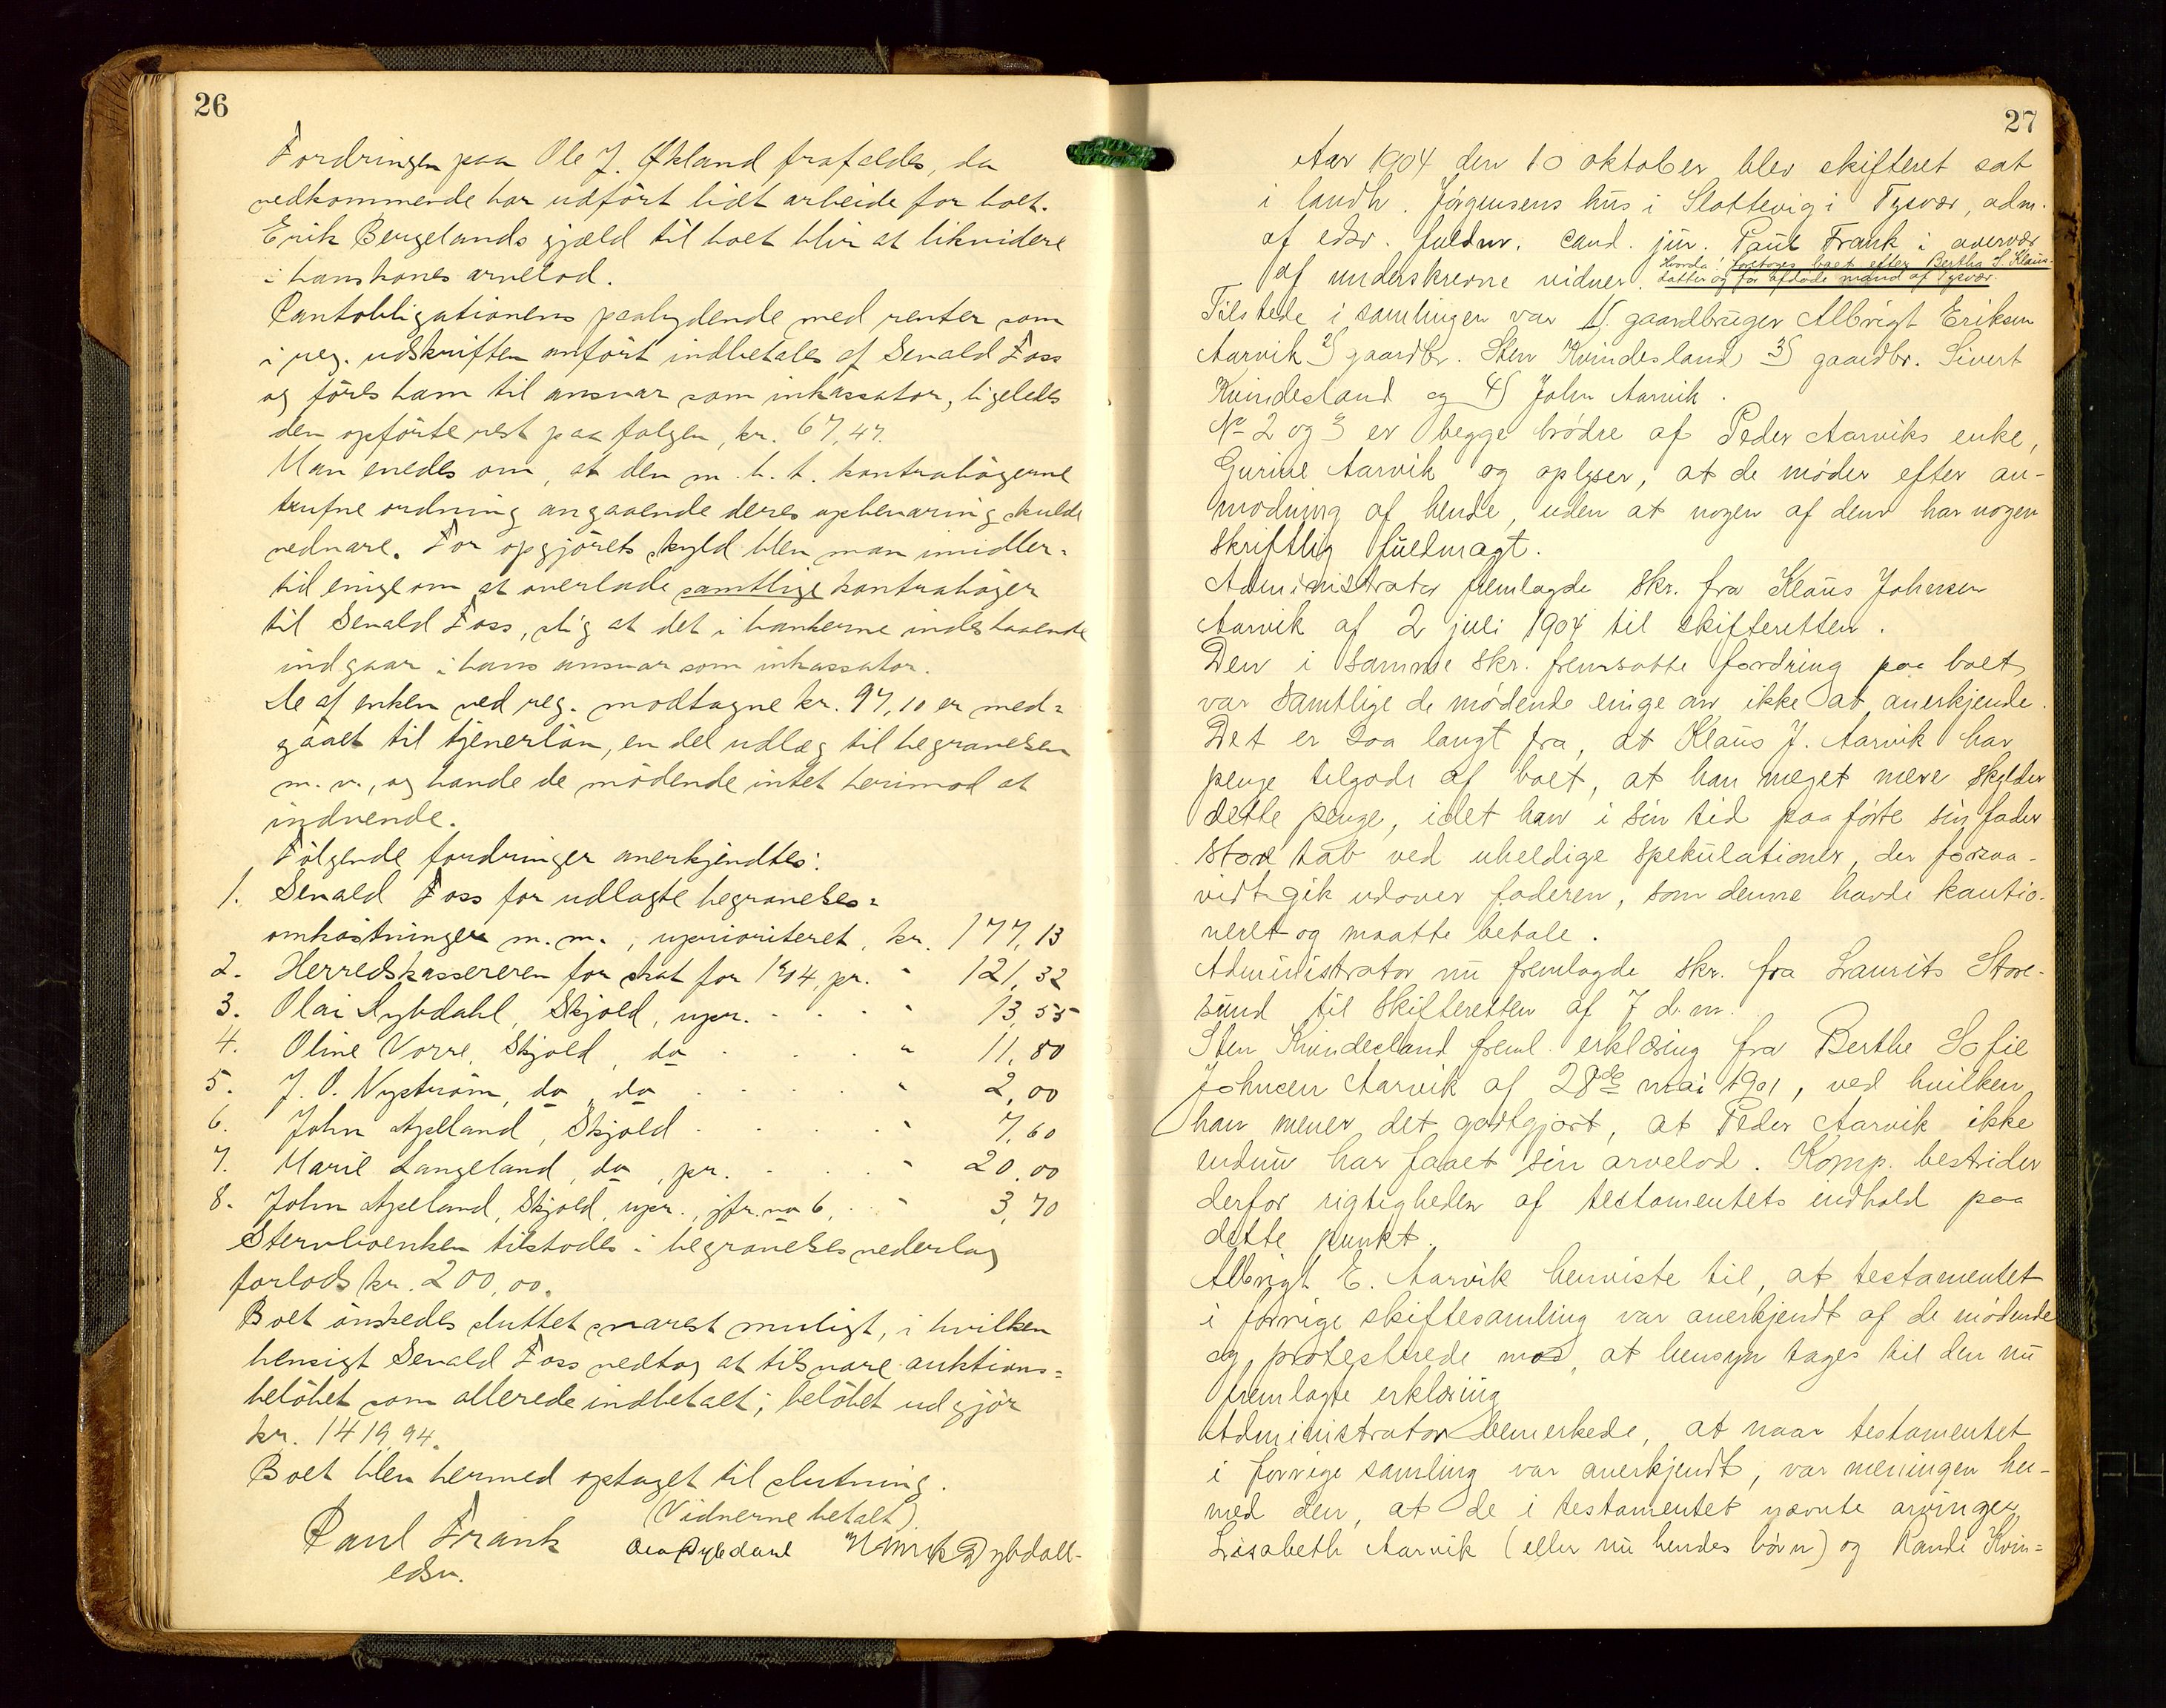 26
Fordringen paa Ole J. Økland frafaldes, da
vedkommende har udført lidt arbeide for boet.
Erik Bergelands gjæld til boet blir at likvidere
i hans kones arvelod.
Pantobligationens paalydende med renter som
i reg. udskriften anført indbetales af Sevald Foss
og føres ham til ansvar som inkassator, ligeledes
den opførte rest paa følgen, kr. 67,47.
Man enedes om, at den m. h. t. kontrabøgerne
trufne ordning angaaende deres opbevaring skulde
vedvare. For opgjørets skyld blev man imidler-
tid enige om at overlade samtlige kontrabøger
til Sevald Foss, slig at det i bankerne indestaaende
indgaar i hans ansvar som inkassator.
De af enken ved reg. modtagne kr. 97,10 er med-
gaaet til tjenerløn, en del udlæg til begravelsen
m. v., og havde de mødende intet herimod at
indvende.
Følgende fordringer anerkjendtes:
1. Sevald Foss for udlagte begravelses-
omkostninger m. m., uprioriteret, kr. 177,13
2. Herredskassereren for skat for 1904, pr. " 121,32
3. Olai Dybdahl, Skjold, upr. " 13,55
4. Oline Vorre, Skjold, do " 11,80
5. J. O. Nystrøm, do, do " 2,00
6. John Apeland, Skjold " 7,60
7. Marie Langeland, do, pr. " 20,00
8. John Apeland, Skjold, upr., jfr. no 6, " 3,70
Stervboenken tilstodes i begravelsesvederlag
forlods kr. 200,00.
Boet ønskedes sluttet snarest muligt, i hvilken
hensigt Sevald Foss vedtog at tilsvare auktions-
beløbet som allerede indbetalt; beløbet udgjør
kr. 1419,94.
Boet blev hermed optaget til slutning.
(Vidnerne betalt)
Paul Frank Dybdahl Dybdall.
edsv.
27
Aar 1904 den 10 oktober blev skifteret sat
i landh. Jørgensens hus i Slottevig i Tysvær, adm.
af edsv. fuldm. cand. jur. Paul Frank i overvær
af underskrevne vidner. Hvorda: foretoges boet efter Bertha S. Klaus-
datter og før afdøde mand af Tysvær.
Tilstede i samlingen var 1) gaardbruger Albrigt Eriksen
Aarvik 2) gaardbr. Sten Kvindesland 3) gaardbr. Sivert
Kvindesland og 4) John Aarvik.
No 2 og 3 er begge brødre af Peder Aarviks enke,
Gurine Aarvik og oplyser, at de møder efter an-
modning af hende, uden at nogen af dem har nogen
skriftlig fuldmagt.
Administrator fremlagde skr. fra Klaus Johnsen
Aarvik af 2 juli 1904 til skifteretten.
Den i samme skr. fremsatte fordring paa boet
var samtlige de mødende enige om ikke at anerkjende.
Det er saa langt fra, at Klaus J. Aarvik har
penge tilgode af boet, at han meget mere skylder
dette penge, idet han i sin tid paaførte sin fader
store tab ved uheldige spekulationer, der forsaa-
vidt gik udover faderen, som denne havde kautio-
neret og maatte betale.
Administrator nu fremlagde skr. fra Laurits Store-
sund til skifteretten af 7 d. m.
Sten Kvindesland freml. erklæring fra Berthe Sofie
Johnsen Aarvik af 28de mai 1901, ved hvilken
han mener det godtgjort, at Peder Aarvik ikke
endnu har faaet sin arvelod. Komp. bestrider
derfor rigtigheden af testamentets indhold paa
dette punkt.
Albrigt E. Aarvik henviste til, at testamentet
i forrige skiftesamling var anerkjendt af de mødende
og protesterede mod, at hensyn tages til den nu
fremlagte erklæring
Administrator bemerkede, at naar testamentet
i forrige samling var anerkjendt, var meningen her-
med den, at de i testamentet nævnte arvinger
Lisabeth Aarvik (eller nu hendes børn) og Randi Kvin-